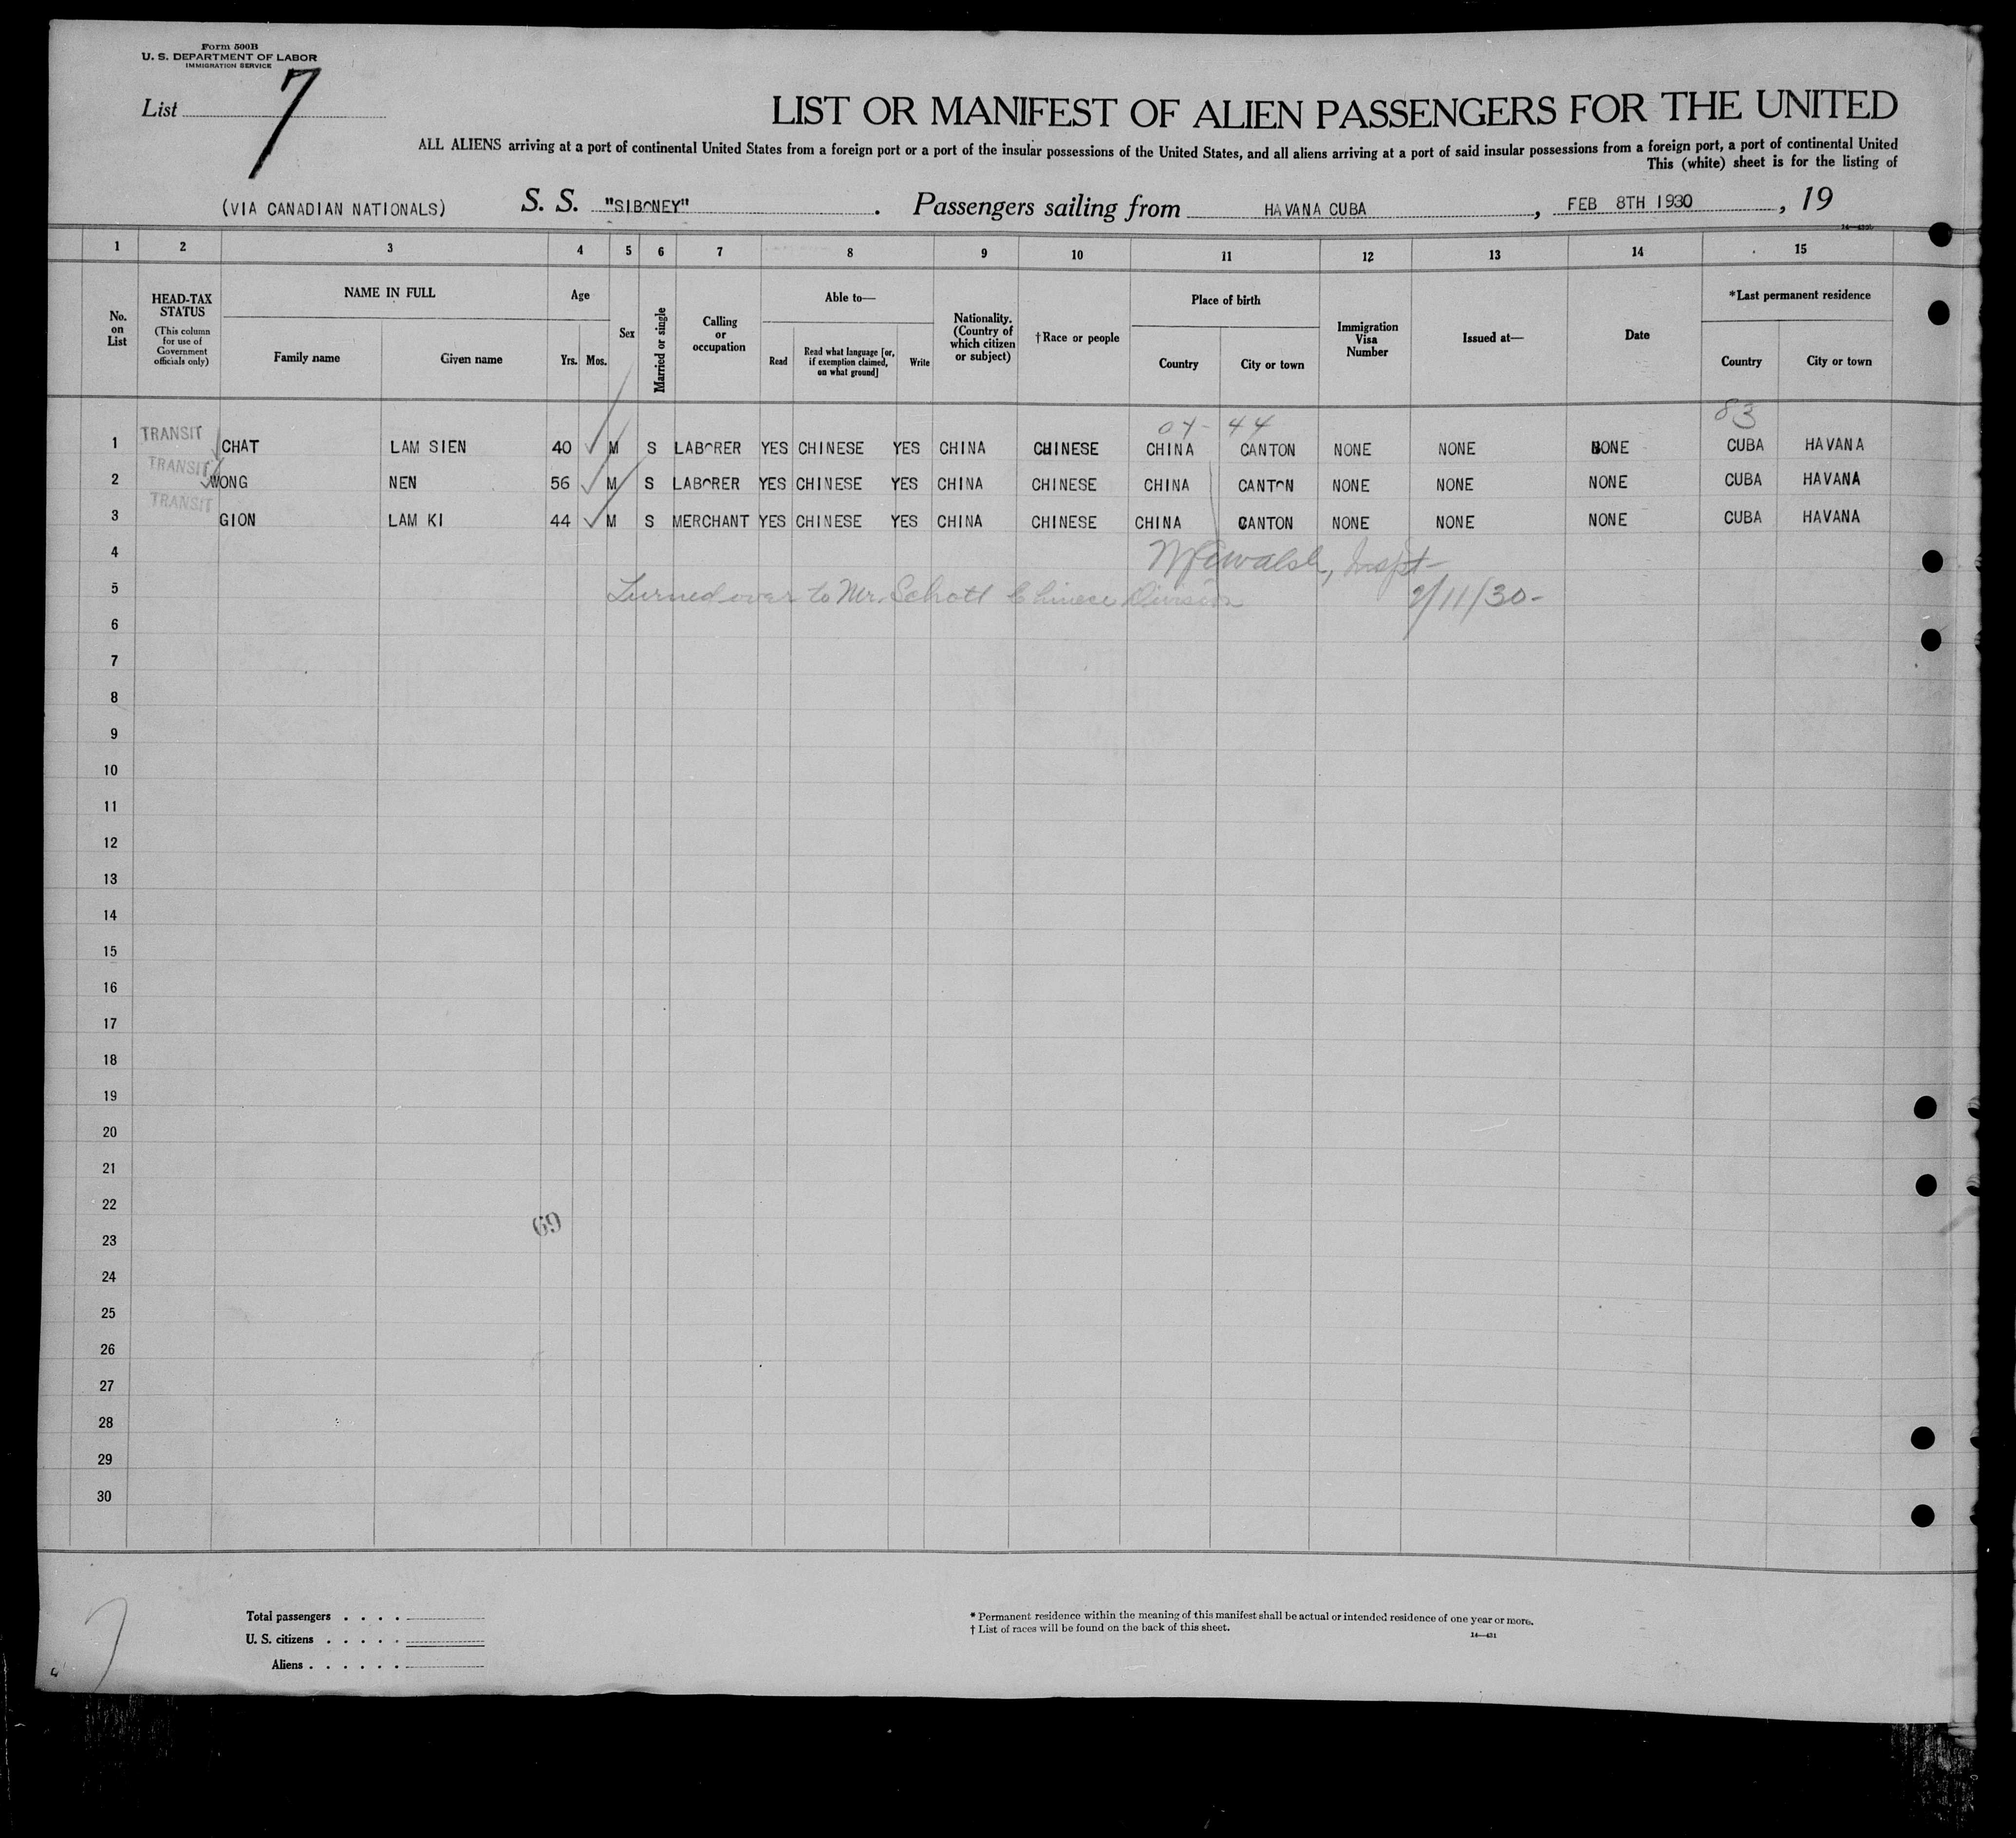 Form 500B
U. S. DEPARTMENT OF LABOR
IMMIGRATION SERVICE
List 7
LIST OR MANIFEST OF ALIEN PASSENGERS FOR THE UNITED
ALL ALIENS arriving at a port of continental United States from a foreign port or a port of the insular possessions of the United States, and all aliens arriving at a port of said insular possessions from a foreign port, a port of continental United
This (white) sheet is for the listing of
(VIA CANADIAN NATIONALS) S. S. "SIBONEY" . Passengers sailing from HAVANA CUBA , FEB 8TH 1930 , 19
1 2 3 4 5 6 7 8 9 10 11 12 13 14 15
No. on List
HEAD-TAX STATUS
(This column for use of Government officials only)
NAME IN FULL
Family name Given name
Age
Yrs. Mos.
Sex
Married or single
Calling or occupation
Able to—
Read Read what language [or, if exemption claimed, on what ground] Write
Nationality. (Country of which citizen or subject)
†Race or people
Place of birth
Country City or town
Immigration Visa Number
Issued at—
Date
*Last permanent residence
Country City or town
44 83
1 TRANSIT CHAT LAM SIEN 40 M S LABORER YES CHINESE YES CHINA CHINESE CHINA CANTON NONE NONE NONE CUBA HAVANA
2 TRANSIT WONG NEN 56 M S LABORER YES CHINESE YES CHINA CHINESE CHINA CANTON NONE NONE NONE CUBA HAVANA
3 TRANSIT GION LAM KI 44 M S MERCHANT YES CHINESE YES CHINA CHINESE CHINA CANTON NONE NONE NONE CUBA HAVANA
4 Walsh, Inspt-
5 Turned over to Mr. Schott Chinese Division 2/11/30-
6
7
8
9
10
11
12
13
14
15
16
17
18
19
20
21
22
69
23
24
25
26
27
28
29
30
Total passengers . . . .
U. S. citizens . . . . .
Aliens . . . . . .
* Permanent residence within the meaning of this manifest shall be actual or intended residence of one year or more.
† List of races will be found on the back of this sheet.
14—431